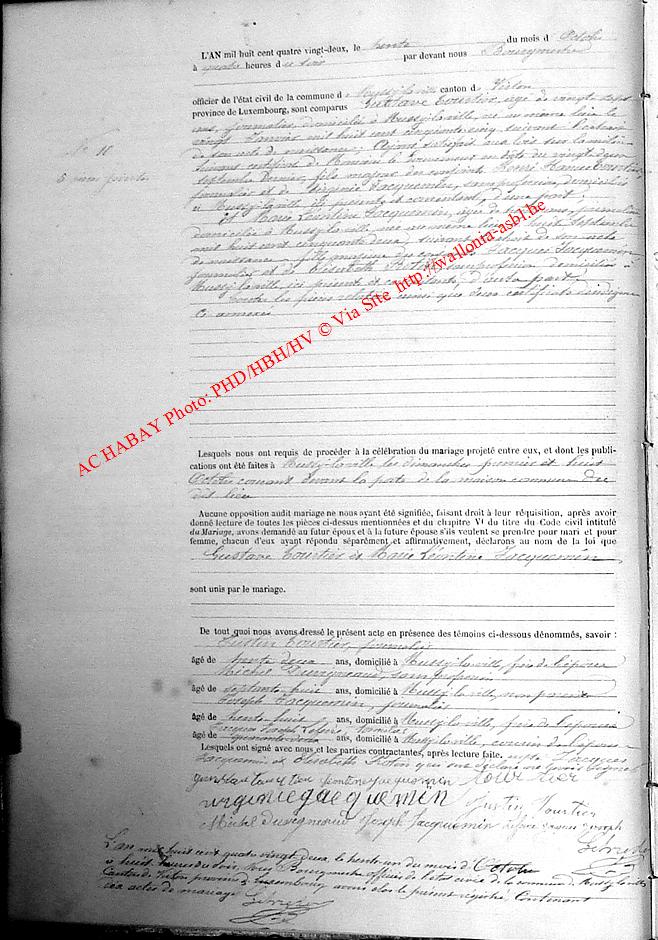 L'AN mil huit cent quatre vingt-deux, le trente du mois d Octobre
à quatre heures du soir par devant nous Bourgmestre
officier de l'état civil de la commune de Mussy-la-ville canton de Virton
province de Luxembourg, sont comparus Gustave Tourtier, âgé de vingt sept
ans, journalier, domicilié à Mussy-la-ville, né au même lieu le
vingt Janvier mil huit cent cinquante cinq suivant l'extrait
de son acte de naissance; Ayant satisfait aux lois sur la milice
suivant certificat de Monsieur le Gouverneur en date du vingt deux
septembre dernier, fils majeur des conjoints Tourtier
journalier et de Virginie Jacquemin, sans profession, domiciliés
à Mussy-la-ville ici présents et consentant, d'une part;
et Marie Léontine Jacquemin, âgée de trente ans, journalière
domiciliée à Mussy-la-ville née au même lieu le huit septembre
mil huit cent cinquante deux, suivant l'extrait de son acte
de naissance, fille majeure des conjoints Jacques Jacquemin
journalier et de Elisabeth sans profession domiciliés à
Mussy-la-ville ici présents et consentants, d'autre part
Toutes les pièces ainsi que deux certificats d'indigence
ci annexés
N° 11
AC HABAY Photo: PHD/HBH/HV © Via Site http://wallonia-asbl.be
Lesquels nous ont requis de procéder à la célébration du mariage projeté entre eux, et dont les publi-
cations ont été faites à Mussy-la-ville les dimanches premier et huit
Octobre courant devant la porte de la maison commune du
dit lieu
Aucune opposition audit mariage ne nous ayant été signifiée, faisant droit à leur réquisition, après avoir
donné lecture de toutes les pièces ci-dessus mentionnées et du chapitre VI du titre du Code civil intitulé
du Mariage, avons demandé au futur époux et à la future épouse s'ils veulent se prendre pour mari et pour
femme, chacun d'eux ayant répondu séparément et affirmativement, déclarons au nom de la loi que
Gustave Tourtier et Marie Léontine Jacquemin
sont unis par le mariage.
De tout quoi nous avons dressé le présent acte en présence des témoins ci-dessous dénommés, savoir :
Justin Tourtier, journalier
âgé de trente deux ans, domicilié à Mussy-la-ville, frère de l'époux
Michel Duvigneaud, sans profession
âgé de septante huit ans, domicilié à Mussy la ville, non parent
Joseph Jacquemin, journalier
âgé de trente huit ans, domicilié à Mussy-la-ville, frère de l'épouse
Jacques Joseph
âgé de quarante deux ans, domicilié à Mussy-la-ville, cousin de l'épouse
Lesquels ont signé avec nous et les parties contractantes, après lecture faite. Jacques
Jacquemin et Elisabeth qui ont déclaré ne savoir signer
gustave tourtier Leontine jacquemin tourtier
virginie jacquemin Justin Tourtier
Michel duvigneaud Joseph Jacquemin jaques joseph
L'an mil huit cent quatre vingt deux, le trente un du mois d'Octobre
à huit heures du soir, Nous Bourgmestre officier de l'état civil de la commune de Mussy-la-ville
Canton de Virton province de Luxembourg avons clos le présent registre, Contenant
actes de mariage